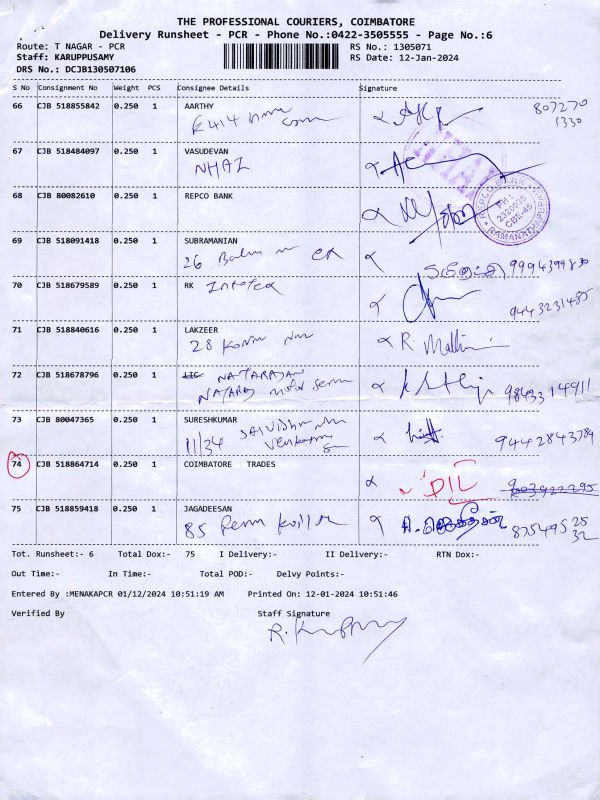 THE PROFESSIONAL COURIERS, COIMBATORE
Delivery Runsheet - PCR - Phone No.:0422-3505555 - Page No.:6
Route: T NAGAR - PCR RS No.: 1305071
Staff: KARUPPUSAMY RS Date: 12-Jan-2024
DRS No.: DCJB130507106
S No Consignment No Weight PCS Consignee Details Signature
66 CJB 518855842 0.250 1 AARTHY
807270
1330
E 414
67 CJB 518484097 0.250 1 VASUDEVAN
NHAI
NHAI
68 CJB 80082610 0.250 1 REPCO BANK
REPCO BANK
PH:
2323039
CBE-45
RAMANATHAPURAM
69 CJB 518091418 0.250 1 SUBRAMANIAN
26
9994399830
70 CJB 518679589 0.250 1 RK
9443231485
71 CJB 518840616 0.250 1 LAKZEER
28 R. Mallini
72 CJB 518678796 0.250 1 LIC NATARAJAN
NATARAJ motor 9843314911
73 CJB 80047365 0.250 1 SURESHKUMAR
11/34 9442843784
74 CJB 518864714 0.250 1 COIMBATORE TRADES
DIL
75 CJB 518859418 0.250 1 JAGADEESAN
85 875495 25
32
Tot. Runsheet:- 6 Total Dox:- 75 I Delivery:- II Delivery:- RTN Dox:-
Out Time:- In Time:- Total POD:- Delvy Points:-
Entered By :MENAKAPCR 01/12/2024 10:51:19 AM Printed On: 12-01-2024 10:51:46
Verified By Staff Signature